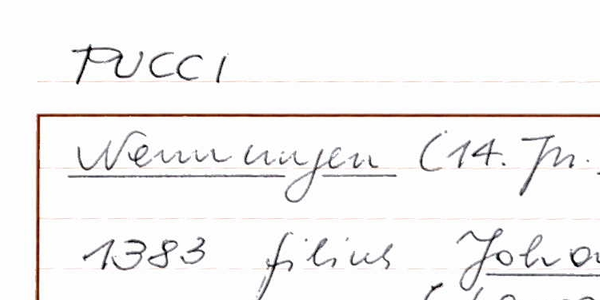 PUCCI
Nennungen (14. Jh.
1383 filius Joha